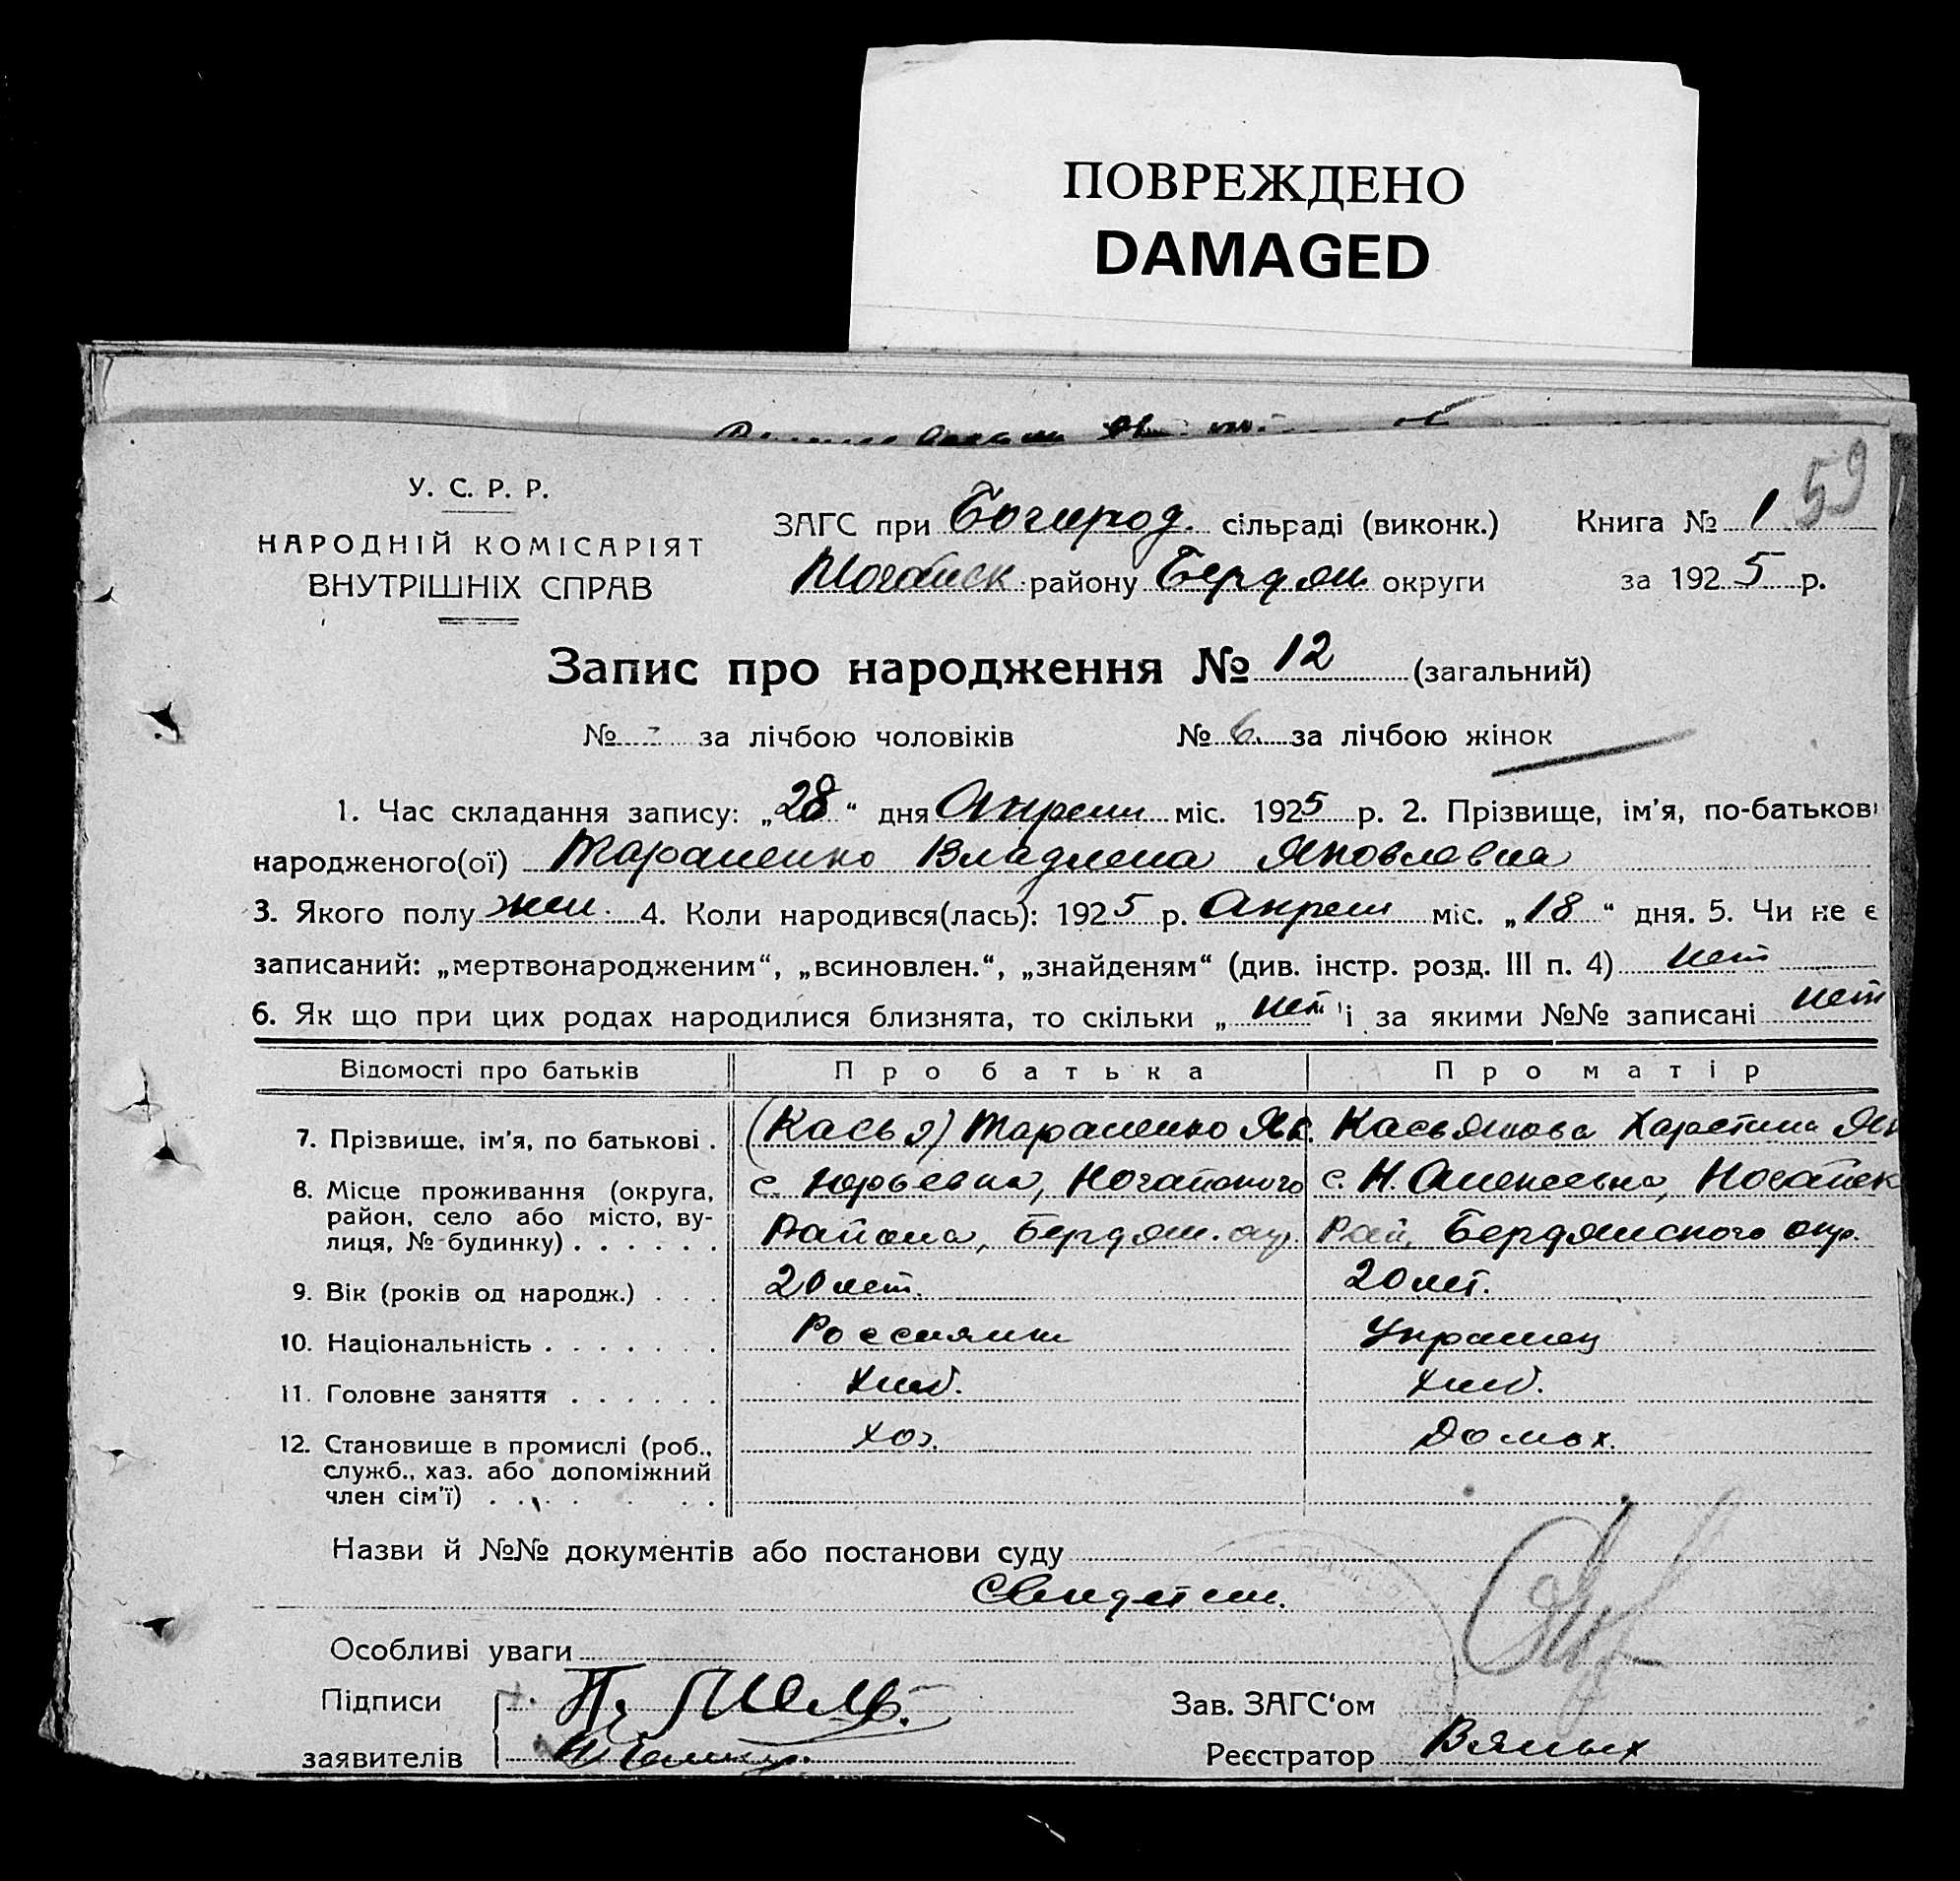 ПОВРЕЖДЕНО
DAMAGED
59
У. С. Р. Р.
НАРОДНІЙ КОМІСАРІЯТ
ВНУТРІШНІХ СПРАВ
ЗАГС при Богород. сільраді (виконк.)
Ногайск району Бердян округи
Книга № 1
за 1925 р.
Запис про народження № 12 (загальний)
№ - за лічбою чоловіків № 6. за лічбою жінок
1. Час складання запису: „28“ дня Апреля міс. 1925 р. 2. Прізвище, ім'я, по-батькові
народженого(ої) Тараненко Владлена Яковлевна
3. Якого полу жен. 4. Коли народився(лась): 1925 р. Апреля міс. „18“ дня. 5. Чи не є
записаний: „мертвонародженим“, „всиновлен.“, „знайденям“ (див. інстр. розд. III п. 4) нет
6. Як що при цих родах народилися близнята, то скільки „ нет “ і за якими №№ записані нет
Відомості про батьків Про батька Про матір
7. Прізвище, ім'я, по батькові . (Касья) Тараненко Як. Касьянова Харетина Як
8. Місце проживання (округа, с. Юрьевка, Ногайского с. Н. Алексеевка, Ногайск
район, село або місто, ву- Района, Бердян. окр. Рай, Бердянского окр.
лиця, № будинку) . . . . . .
9. Вік (років од народж.) . . . 20 лет. 20 лет.
10. Національність . . . . . . . Россиянин Украинец
11. Головне заняття . . . . . . Хлеб. Хлеб.
12. Становище в промислі (роб., хоз. Домох.
служб., хаз. або допоміжний
член сім'ї) . . . . . . .
Назви й №№ документів або постанови суду
Свидетел.
Особливі уваги
Підписи
заявителів
Зав. ЗАГС'ом
Реєстратор Вялых